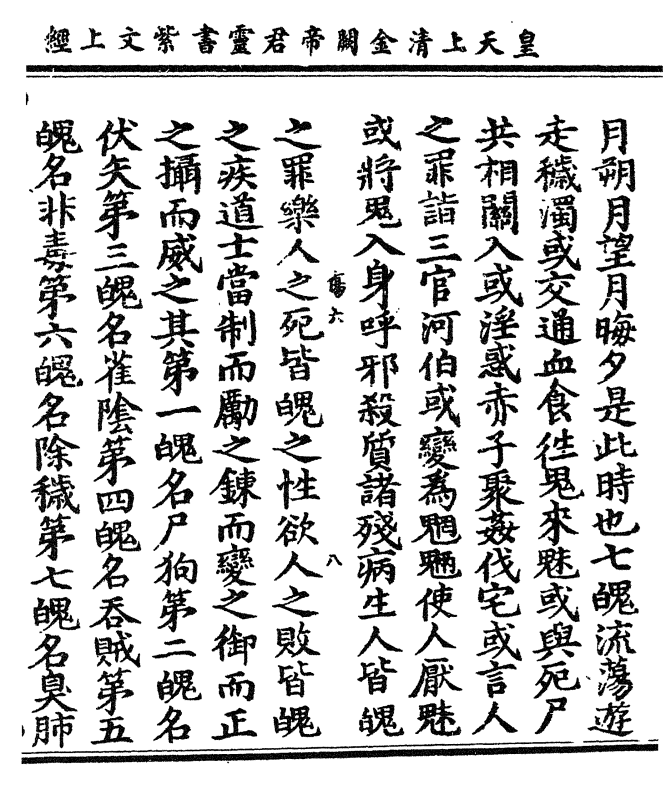 皇天上清金闕帝君靈書紫文上經
月朔月望月晦夕是此時也七魄流蕩遊
走穢濁或交通血食徃鬼來魅或與死尸
共相關入或淫惑赤子聚姦伐宅或言人
之罪詣三官河伯或變為魍魎使人厭魅
或將鬼入身呼邪殺質諸殘病生人皆魄
傷六
八
之罪樂人之死皆魄之性欲人之敗皆魄
之疾道士當制而厲之鍊而變之御而正
之攝而威之其第一魄名尸狗第二魄名
伏矢第三魄名雀陰第四魄名吞賊第五
魄名非毒第六魄名除穢第七魄名臭肺